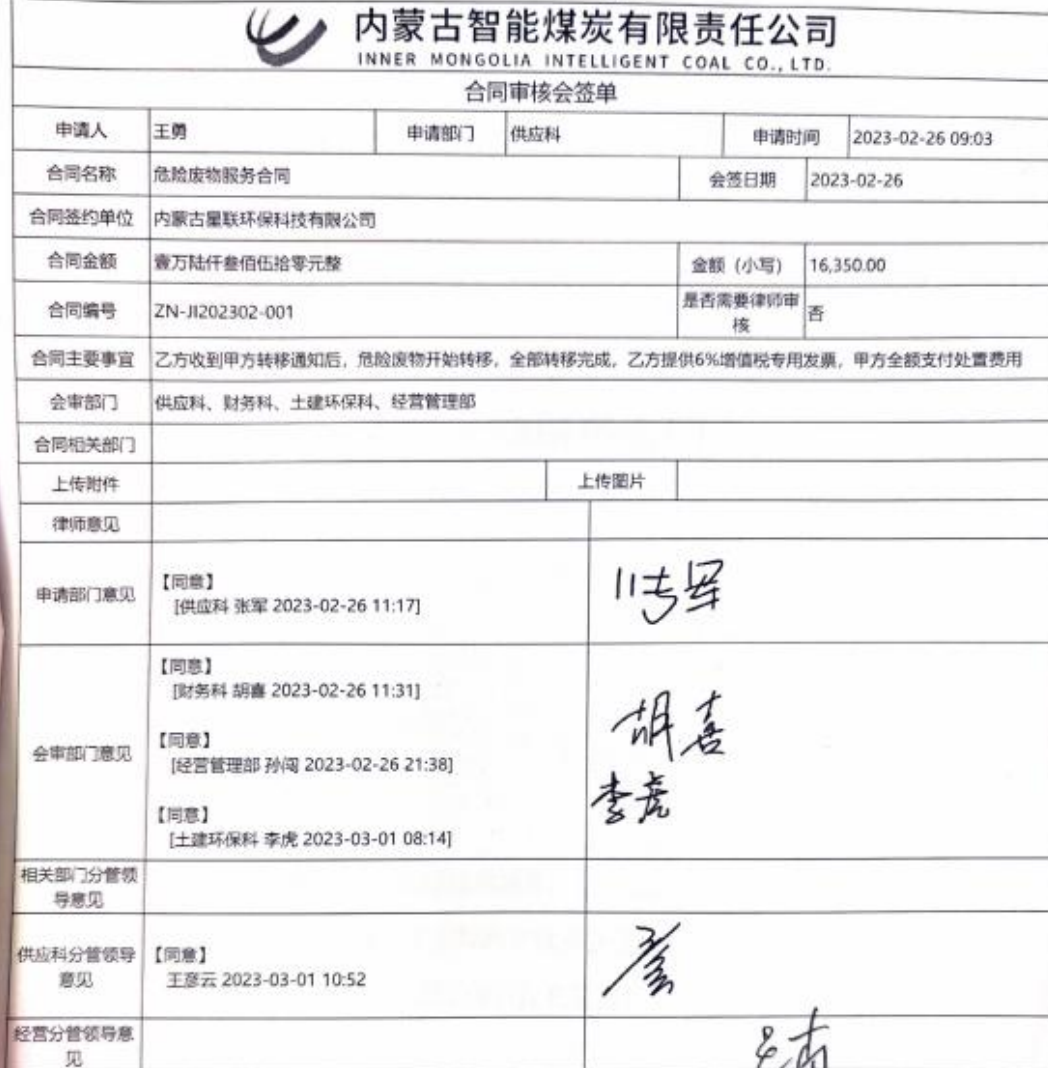 内蒙古智能煤炭有限责任公司
INNER MONGOLIA INTELLIGENT COAL CO., LTD.
合同审核会签单
申请人 王勇 申请部门 供应科 申请时间 2023-02-26 09:03
合同名称 危险废物服务合同 会签日期 2023-02-26
合同签约单位 内蒙古星联环保科技有限公司
合同金额 壹万陆仟叁佰伍拾零元整 金额（小写） 16,350.00
合同编号 ZN-JI202302-001 是否需要律师审
核 否
合同主要事宜 乙方收到甲方转移通知后，危险废物开始转移，全部转移完成，乙方提供6%增值税专用发票，甲方全额支付处置费用
会审部门 供应科、财务科、土建环保科、经营管理部
合同相关部门
上传附件 上传图片
律师意见
申请部门意见 【同意】
[供应科 张军 2023-02-26 11:17]
会审部门意见 【同意】
[财务科 胡喜 2023-02-26 11:31]
胡喜
【同意】
[经营管理部 孙闯 2023-02-26 21:38]
李虎
【同意】
[土建环保科 李虎 2023-03-01 08:14]
相关部门分管领
导意见
供应科分管领导
意见 【同意】
王彦云 2023-03-01 10:52
经营分管领导意
见